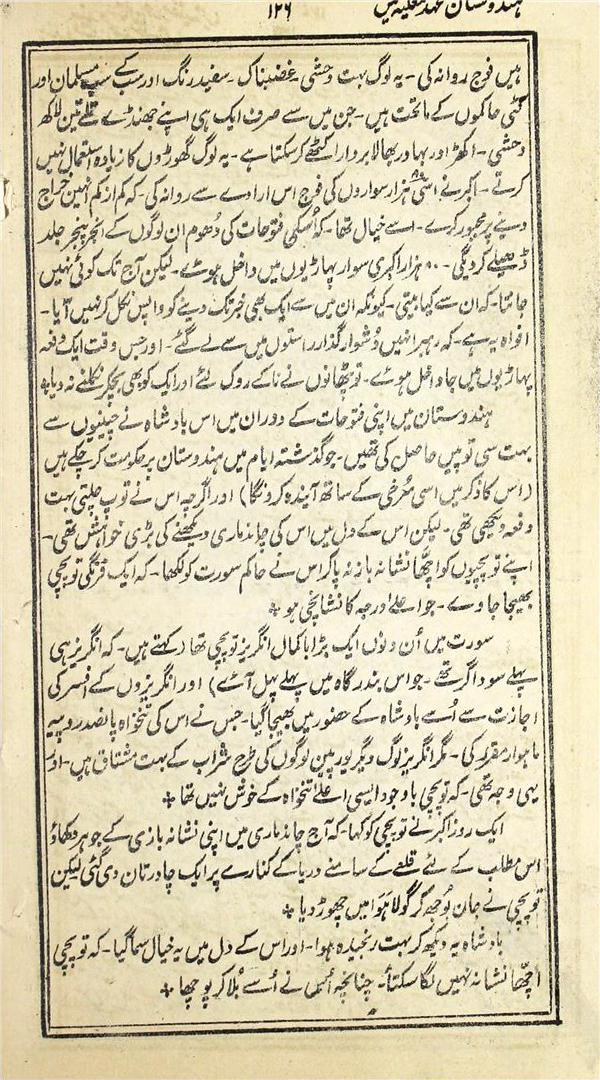 ہندوستان عہد مغلیہ میں
۱۲۶
ہیں فوج روانہ کی - یہ لوگ بہت وحشی - غضبناک - سفید رنگ اور سب کے سب مسلمان اور
کئی حاکموں کے ماتحت ہیں - جن میں سے صرف ایک ہی اپنے جھنڈے تلے تین لاکھ
وحشی - اکھڑ اور بہادر بھالا بردار اکٹھے کر سکتا ہے - یہ لوگ گھوڑوں کا زیادہ استعمال نہیں
کرتے - اکبر نے اسّی ہزار سواروں کی فوج اس ارادے سے روانہ کی - کہ کم از کم انہیں خراج
دینے پر مجبور کرے - اسے خیال تھا - کہ اُسکی فتوحات کی دُھوم ان لوگوں کے انجر پنجر جلد
ڈھیلے کر دیگی - ۸۰ ہزار اکبری سوار پہاڑیوں میں داخل ہوئے - لیکن آج تک کوئی نہیں
جانتا - کہ ان سے کیا بیتی - کیونکہ ان میں سے ایک بھی خبر تک دینے کو واپس نکل کر نہیں آیا -
افواہ یہ ہے - کہ رہبر انہیں دُشوار گذار راستوں میں سے لے گئے - اور جس وقت ایک دفعہ
پہاڑیوں میں جا داخل ہوئے - تو پٹھانوں نے ناکے روک لئے اور ایک کو بھی بچکر نکلنے نہ دیا ٭
ہندوستان میں اپنی فتوحات کے دوران میں اس بادشاہ نے چینیوں سے
بہت سی توپیں حاصل کی تھیں - جو گذشتہ ایام میں ہندوستان پر حکومت کر چکے ہیں
(اس کا ذکر میں اسی سُرخی کے ساتھ آیندہ کرونگا) اور اگرچہ اس نے توپ چلتی بہت
دفعہ دیکھی تھی - لیکن اس کے دل میں اس کی چاند ماری دیکھنے کی بڑی خواہش تھی -
اپنے توپچیوں کو اچھّا نشانہ باز نہ پا کر اس نے حاکم سورت کو لکھا - کہ ایک فرنگی توپچی
بھیجا جاوے - جو اعلےٰ درجہ کا نشانچی ہو ٭
سورت میں اُن دنوں ایک بڑا باکمال انگریز توپچی تھا (کہتے ہیں - کہ انگریز ہی
پہلے سوداگر تھے - جو اس بندرگاہ میں پہلے پہل آئے) اور انگریزوں کے افسر کی
اجازت سے اُسے بادشاہ کے حضور میں بھیجا گیا - جس نے اس کی تنخواہ پانصد روپیہ
ماہوار مقرر کی - مگر انگریز لوگ دیگر یورپین لوگوں کی طرح شراب کے بہت مشتاق ہیں - اور
یہی وجہ تھی - کہ توپچی باوجود ایسی اعلےٰ تنخواہ کے خوش نہیں تھا ٭
ایک روز اکبر نے توپچی کو کہا - کہ آج چاند ماری میں اپنی نشانہ بازی کے جوہر دکھاؤ
اس مطلب کے لئے قلعے کے سامنے دریا کے کنارے پر ایک چادر تان دی گئی لیکن
توپچی نے جان بوجھ کر گولا ہوا میں چھوڑ دیا ٭
بادشاہ یہ دیکھ کر بہت رنجیدہ ہوا - اور اس کے دل میں یہ خیال سما گیا - کہ توپچی
اچھّا نشانہ نہیں لگا سکتا - چنانچہ اُس نے اُسے بُلا کر پوچھا ٭